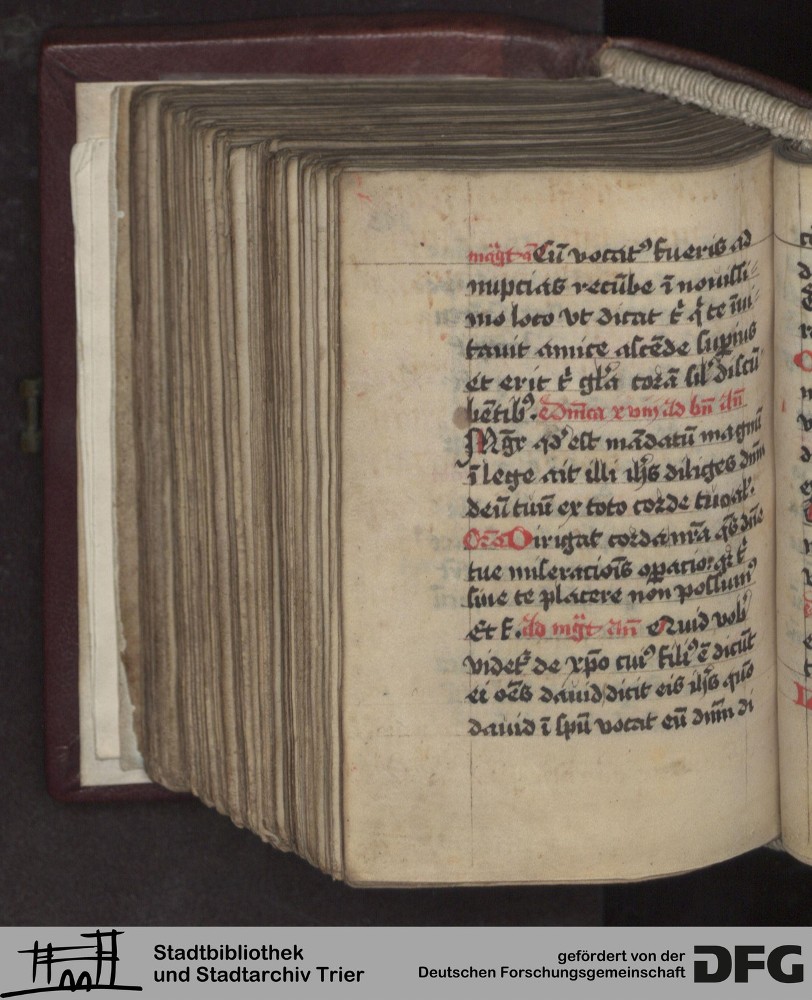 mağt añ Cū vocatꝰ fueris ad
nupcias recūbe ī nouissi-
mo loco vt dicat t̉ q̇ te īui-
tauit amice ascēde supius
et erit t̉ gl̄a corā sil̉ discū
bētibꝰ. dn̄ica xviij Ad bn̄ Añ
Mḡr qḋ est mādatū magnū
ī lege ait illi ih̄s diliges dn̄m
deū tuū ex toto corde tuo al̉.
Orō Dirigat corda nr̄a q̄s dn̄e
tue miseracioīs opacio: q̄ t̉
sine te placere non possumꝰ
Et f̉. Ad mağt Añ Quid vob̉
videt̉ de xp̄o cuiꝰ filiꝰ ē dicūt
ei oēs dauid dicit eis ih̄s quō
dauid ī spū vocat eū dn̄m di
Stadtbibliothek
und Stadtarchiv Trier
gefördert von der
Deutschen Forschungsgemeinschaft
DFG